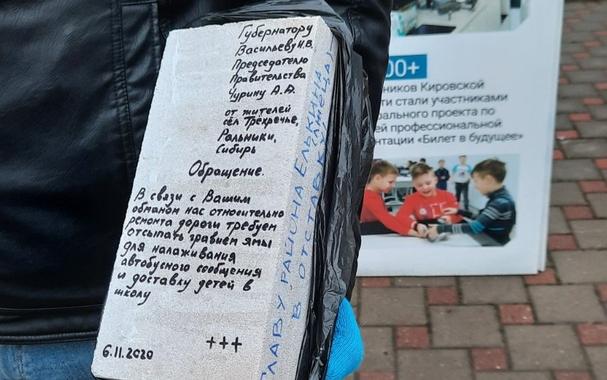 Губернатору
Васильеву И.В.
Председателю
Правительства
Чурину А.А.
от жителей
сёл Трёхречье,
Ральники,
Сибирь
Обращение.
В связи с Вашим
обманом нас относительно
ремонта дороги требуем
отсыпать гравием ямы
для налаживания
автобусного сообщения
и доставку детей в
школу
6.11.2020
+++
ГЛАВУ РАЙОНА ЕЛЬКИНА
В ОТСТАВКУ
00+
ников Кировской
ти стали участниками
ального проекта по
ей профессиональной
нтации «Билет в будущее»